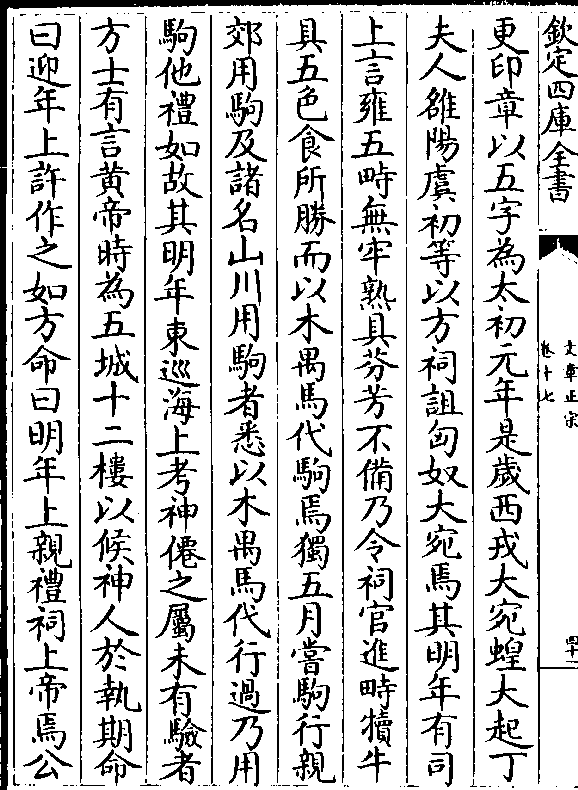 欽定四庫全書
文章正宗
卷十七
四十一
更印章以五字為太初元年是歲西戎大宛蝗大起丁
夫人雒陽虞初等以方祠詛匈奴大宛焉其明年有司
上言雍五畤無牢熟具芬芳不備乃令祠官進畤犢牛
具五色食所勝而以木禺馬代駒焉獨五月嘗駒行親
郊用駒及諸名山川用駒者悉以木禺馬代行過乃用
駒他禮如故其明年東巡海上考神僊之屬未有驗者
方士有言黄帝時為五城十二樓以候神人於執期命
曰迎年上許作之如方命曰明年上親禮祠上帝焉公